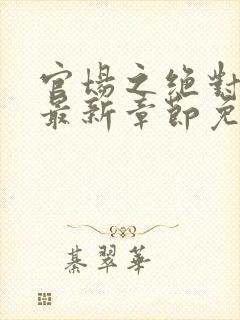 官場之絕對
最新章節免
綦翠華